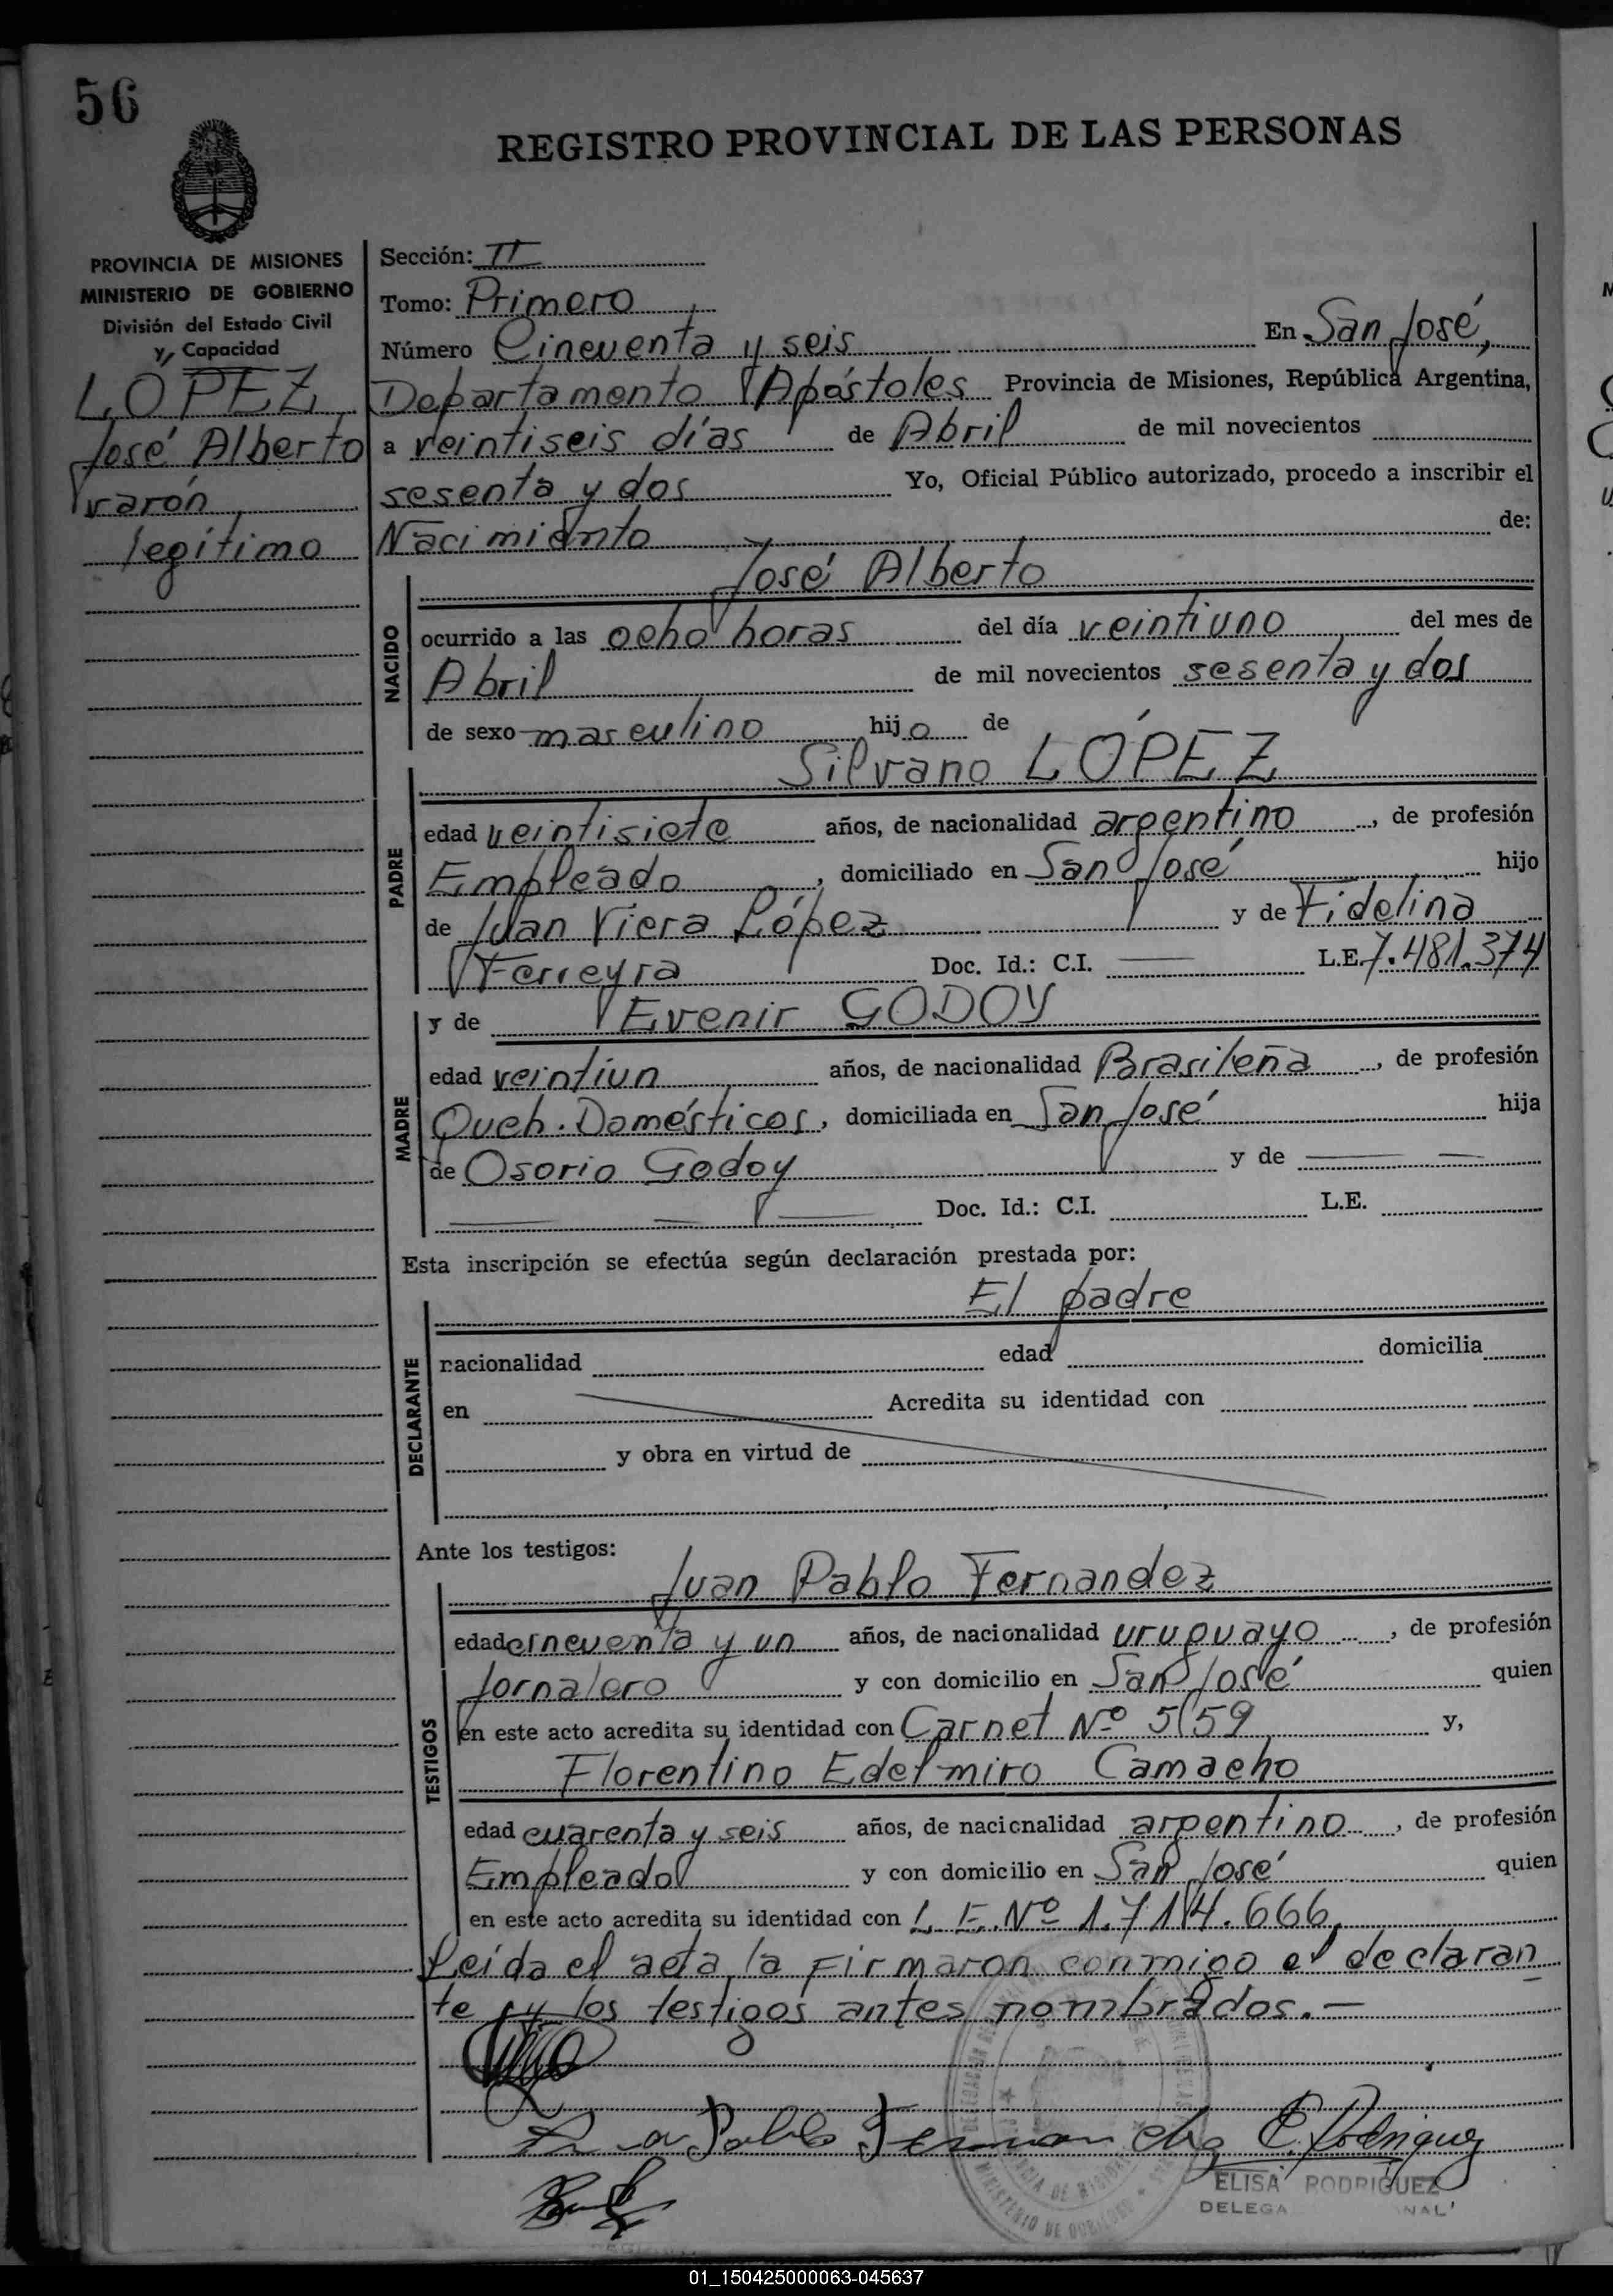 56
REGISTRO PROVINCIAL DE LAS PERSONAS
PROVINCIA DE MISIONES
MINISTERIO DE GOBIERNO
División del Estado Civil
y Capacidad
LÓPEZ
José Alberto
varón
legítimo
Sección: II
Tomo: Primero
Número Cincuenta y seis En San José,
Departamento Apóstoles Provincia de Misiones, República Argentina,
a veintiseis días de Abril de mil novecientos
sesenta y dos Yo, Oficial Público autorizado, procedo a inscribir el
Nacimiento de:
José Alberto
NACIDO
ocurrido a las ocho horas del día veintiuno del mes de
Abril de mil novecientos sesenta y dos
de sexo masculino hijo de
Silvano LÓPEZ
PADRE
edad veintisiete años, de nacionalidad argentino, de profesión
Empleado, domiciliado en San José hijo
de Juan Viera López y de Fidelina
Ferreyra Doc. Id.: C.I. — L.E. 7.481.374
y de Evenir GODOY
MADRE
edad veintiun años, de nacionalidad Brasileña, de profesión
Queh. Domésticos, domiciliada en San José hija
de Osorio Godoy y de — —
— — — Doc. Id.: C.I. L.E.
Esta inscripción se efectúa según declaración prestada por:
El padre
DECLARANTE
nacionalidad edad domicilia
en Acredita su identidad con
y obra en virtud de
Ante los testigos:
Juan Pablo Fernandez
TESTIGOS
edad cincuenta y un años, de nacionalidad uruguayo, de profesión
Jornalero y con domicilio en San José quien
en este acto acredita su identidad con Carnet Nº 5159 y,
Florentino Edelmiro Camacho
edad cuarenta y seis años, de nacionalidad argentino, de profesión
Empleado y con domicilio en San José quien
en este acto acredita su identidad con L.E. Nº 1.714.666,
Leída el acta, la firmaron conmigo el declaran
te y los testigos antes nombrados.—
Pablo Fernandez E. Rodriguez
ELISA RODRIGUEZ
DELEGA
MINISTERIO DE GOBIERNO
01_150425000063-045637